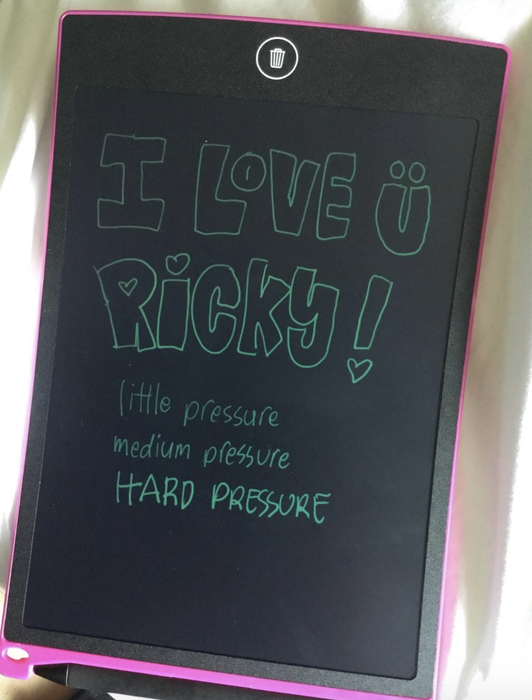 I LOVE Ü
RiCKY!
little pressure
medium pressure
HARD PRESSURE